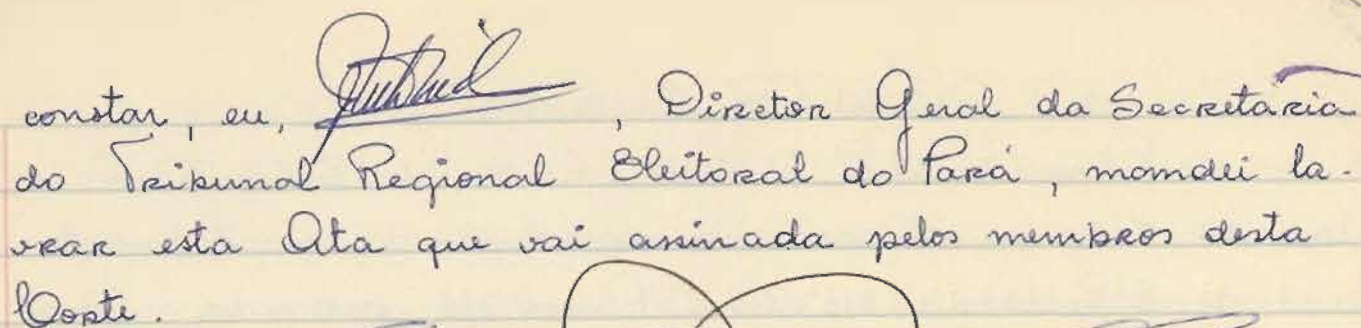 constar, eu, , Diretor Geral da Secretaria
do Tribunal Regional Eleitoral do Pará, mandei la-
vrar esta Ata que vai assinada pelos membros desta
Corte.